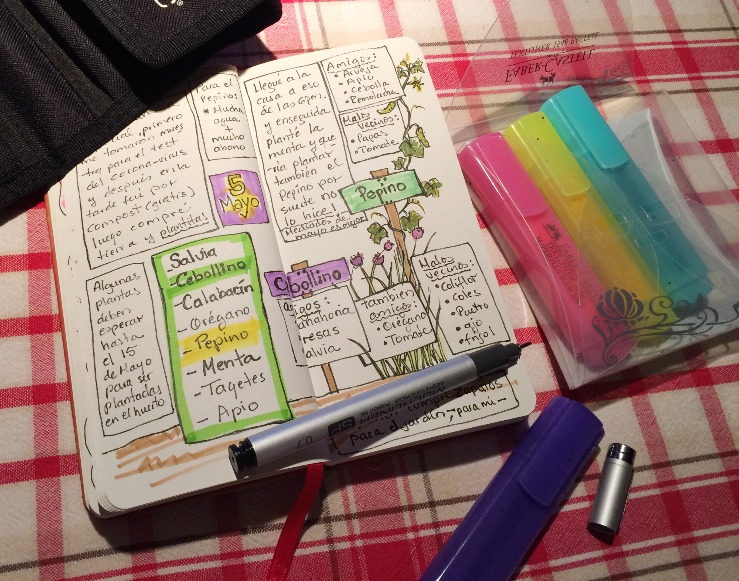 primero
me tomaron mues
tra para el test
del corona-virus
y después en la
tarde fui por
compost (gratis)
luego compré
tierra y plantitas
Para el
Pepino:
* Mucha
agua
+
mucho
abono
5
Mayo
Algunas
plantas
deben
esperar
hasta
el 15
de Mayo
para ser
plantadas
en el huerto
Salvia
- Cebollino
- Calabacín
- Orégano
- Pepino
- Menta
- Tagetes
- Apio
Llegué a la
casa a eso
de las 6pm.
y enseguida
planté la
menta y que
ría plantar
también el
Pepino por
suerte no
lo hice!
Mediados de
mayo es mejor
Amigos:
• Arveja
• Apio
• Cebolla
• Remolacha
Malos
Vecinos:
• Papas
• Tomate
Pepino
Cebollino
igos:
anahoria
resas
alvia
también
amigos:
• Orégano
• Tomate
Malos
vecinos:
• Coliflor
• coles
• Puerro
• ajo
• frijol
compré zapatos
para el jardín - para mi -
0.7
FABER-CASTELL